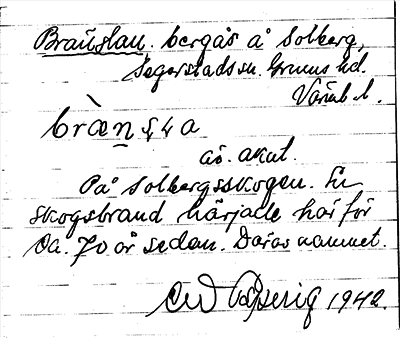 Brännslan. bergås å Solberg,
Segerstads sn. Grums hd.
Värml. l.
bræ̀nsla
às. akut.
På Solbergsskogen. En
skogsbrand härjade här för
Ca. 70 år sedan. Därav namnet.
1942.